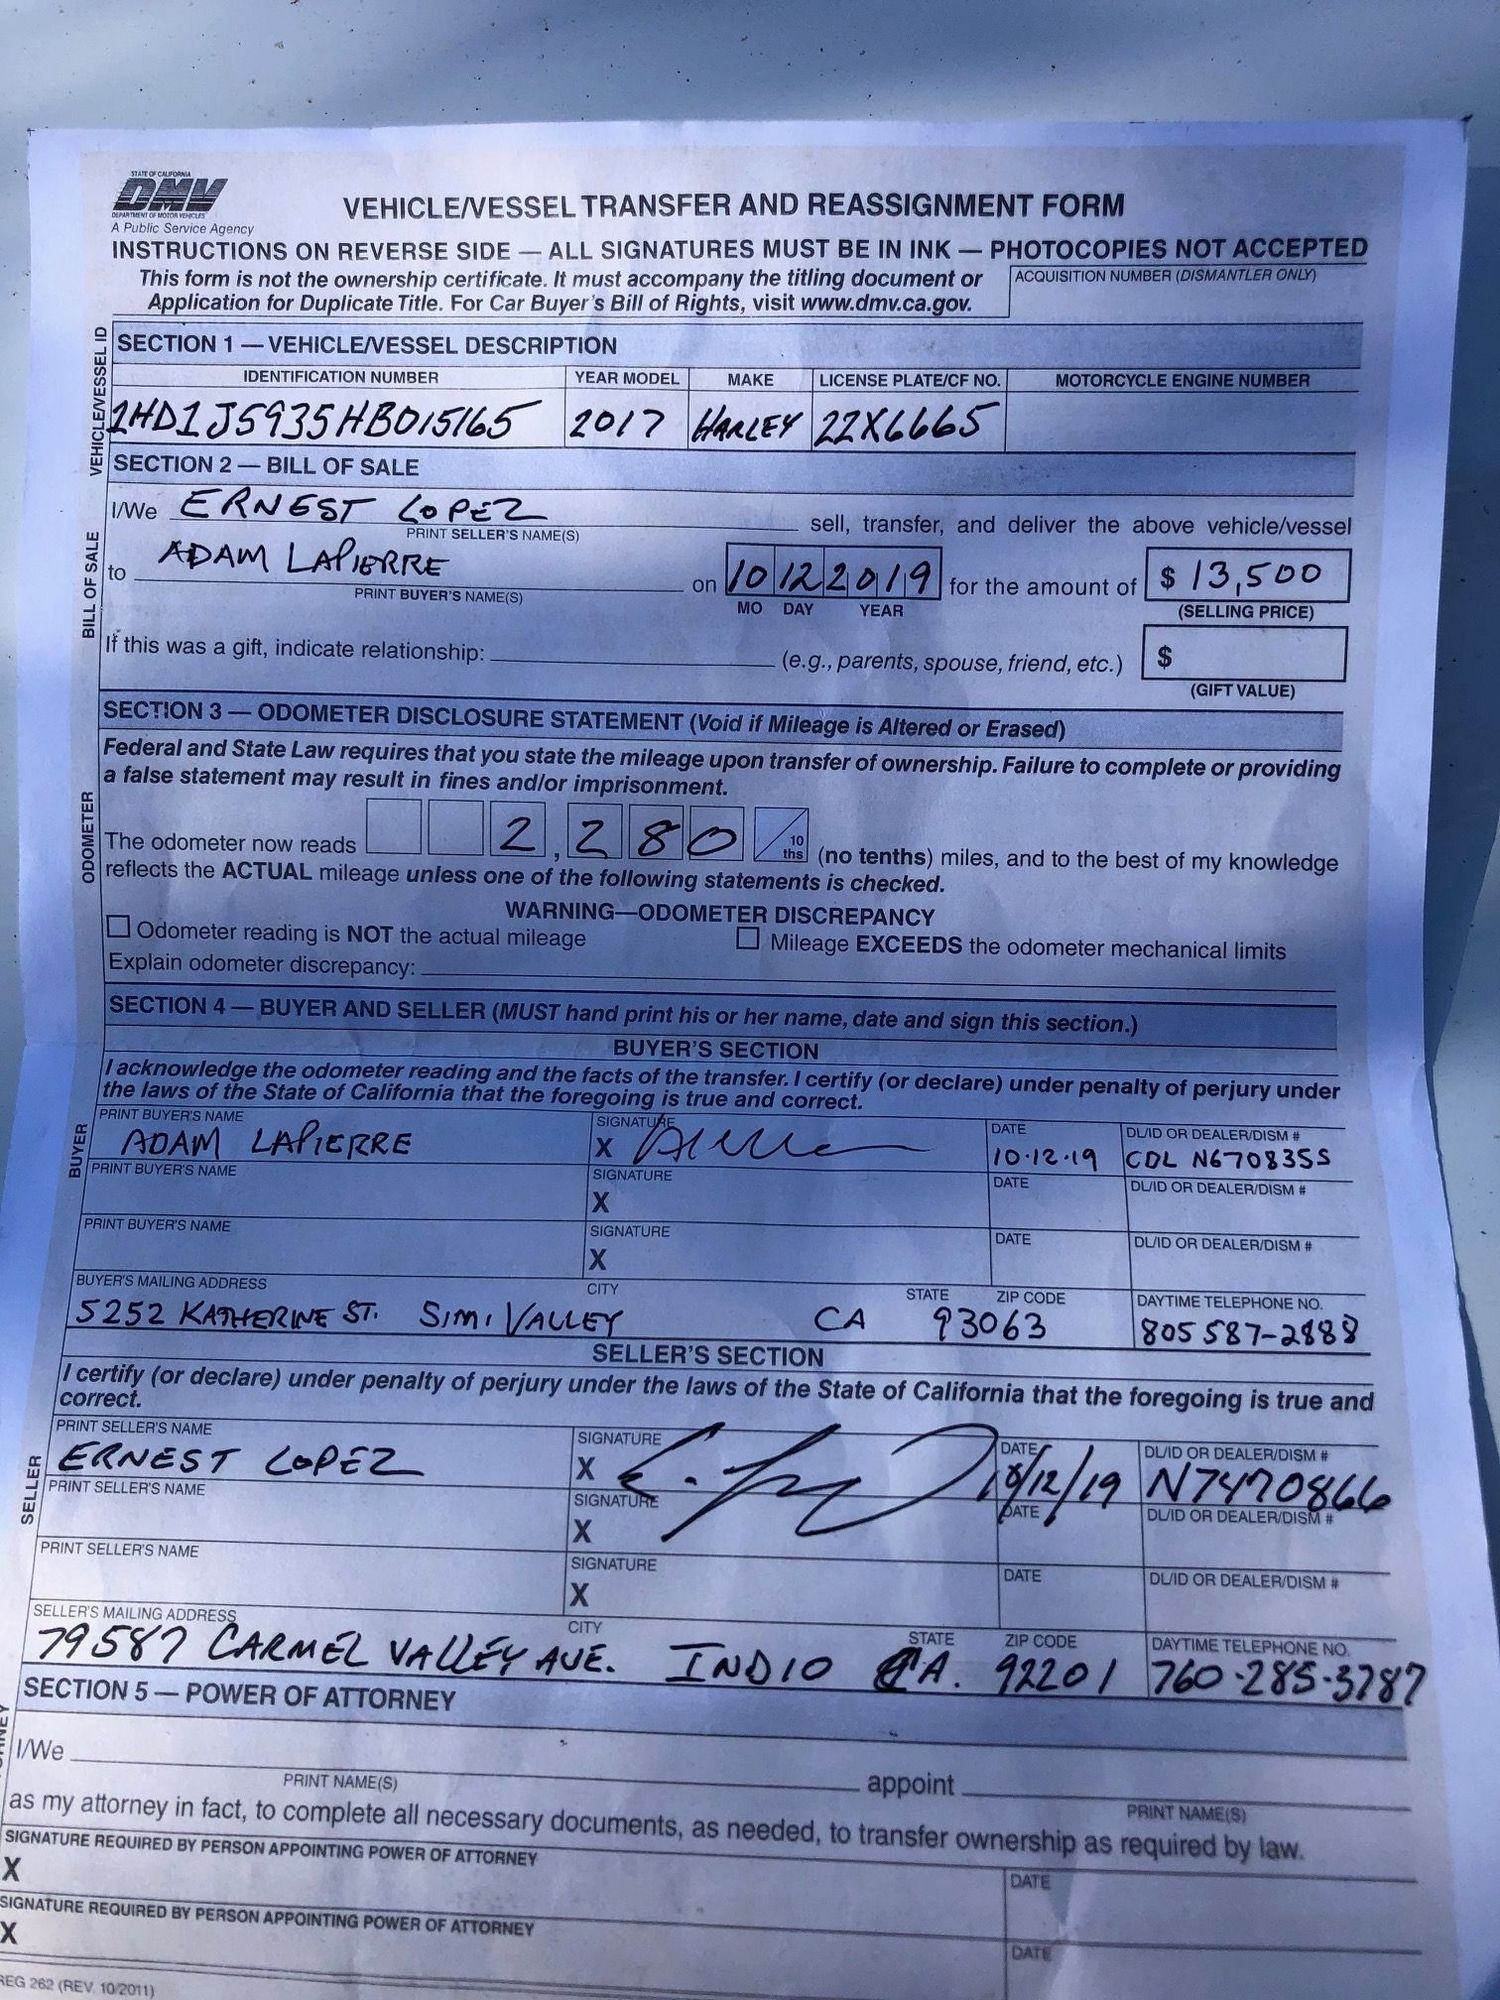 STATE OF CALIFORNIA
DMV
DEPARTMENT OF MOTOR VEHICLES
A Public Service Agency
VEHICLE/VESSEL TRANSFER AND REASSIGNMENT FORM
INSTRUCTIONS ON REVERSE SIDE — ALL SIGNATURES MUST BE IN INK — PHOTOCOPIES NOT ACCEPTED
This form is not the ownership certificate. It must accompany the titling document or
Application for Duplicate Title. For Car Buyer's Bill of Rights, visit www.dmv.ca.gov.
ACQUISITION NUMBER (DISMANTLER ONLY)
VEHICLE/VESSEL ID
SECTION 1 — VEHICLE/VESSEL DESCRIPTION
IDENTIFICATION NUMBER YEAR MODEL MAKE LICENSE PLATE/CF NO. MOTORCYCLE ENGINE NUMBER
1HD1J5935HB015165 2017 HARLEY 22X6665
BILL OF SALE
SECTION 2 — BILL OF SALE
I/We ERNEST LOPEZ sell, transfer, and deliver the above vehicle/vessel
PRINT SELLER'S NAME(S)
to ADAM LAPIERRE on 10 12 2019 for the amount of $ 13,500
PRINT BUYER'S NAME(S) MO DAY YEAR (SELLING PRICE)
If this was a gift, indicate relationship: (e.g., parents, spouse, friend, etc.) $
(GIFT VALUE)
ODOMETER
SECTION 3 — ODOMETER DISCLOSURE STATEMENT (Void if Mileage is Altered or Erased)
Federal and State Law requires that you state the mileage upon transfer of ownership. Failure to complete or providing
a false statement may result in fines and/or imprisonment.
The odometer now reads 2,280 10 ths (no tenths) miles, and to the best of my knowledge
reflects the ACTUAL mileage unless one of the following statements is checked.
WARNING—ODOMETER DISCREPANCY
Odometer reading is NOT the actual mileage Mileage EXCEEDS the odometer mechanical limits
Explain odometer discrepancy:
SECTION 4 — BUYER AND SELLER (MUST hand print his or her name, date and sign this section.)
BUYER'S SECTION
I acknowledge the odometer reading and the facts of the transfer. I certify (or declare) under penalty of perjury under
the laws of the State of California that the foregoing is true and correct.
BUYER
PRINT BUYER'S NAME SIGNATURE DATE DL/ID OR DEALER/DISM #
ADAM LAPIERRE X 10.12.19 CDL N6708355
PRINT BUYER'S NAME SIGNATURE DATE DL/ID OR DEALER/DISM #
X
PRINT BUYER'S NAME SIGNATURE DATE DL/ID OR DEALER/DISM #
X
BUYER'S MAILING ADDRESS CITY STATE ZIP CODE DAYTIME TELEPHONE NO.
5252 KATHERINE ST. SIMI VALLEY CA 93063 805 587-2888
SELLER'S SECTION
I certify (or declare) under penalty of perjury under the laws of the State of California that the foregoing is true and
correct.
SELLER
PRINT SELLER'S NAME SIGNATURE DATE DL/ID OR DEALER/DISM #
ERNEST LOPEZ X 10/12/19 N7470866
PRINT SELLER'S NAME SIGNATURE DATE DL/ID OR DEALER/DISM #
X
PRINT SELLER'S NAME SIGNATURE DATE DL/ID OR DEALER/DISM #
X
SELLER'S MAILING ADDRESS CITY STATE ZIP CODE DAYTIME TELEPHONE NO.
79587 CARMEL VALLEY AVE. INDIO CA. 92201 760-285-3787
SECTION 5 — POWER OF ATTORNEY
I/We appoint
PRINT NAME(S) PRINT NAME(S)
as my attorney in fact, to complete all necessary documents, as needed, to transfer ownership as required by law.
SIGNATURE REQUIRED BY PERSON APPOINTING POWER OF ATTORNEY DATE
X
SIGNATURE REQUIRED BY PERSON APPOINTING POWER OF ATTORNEY DATE
X
REG 262 (REV. 10/2011)